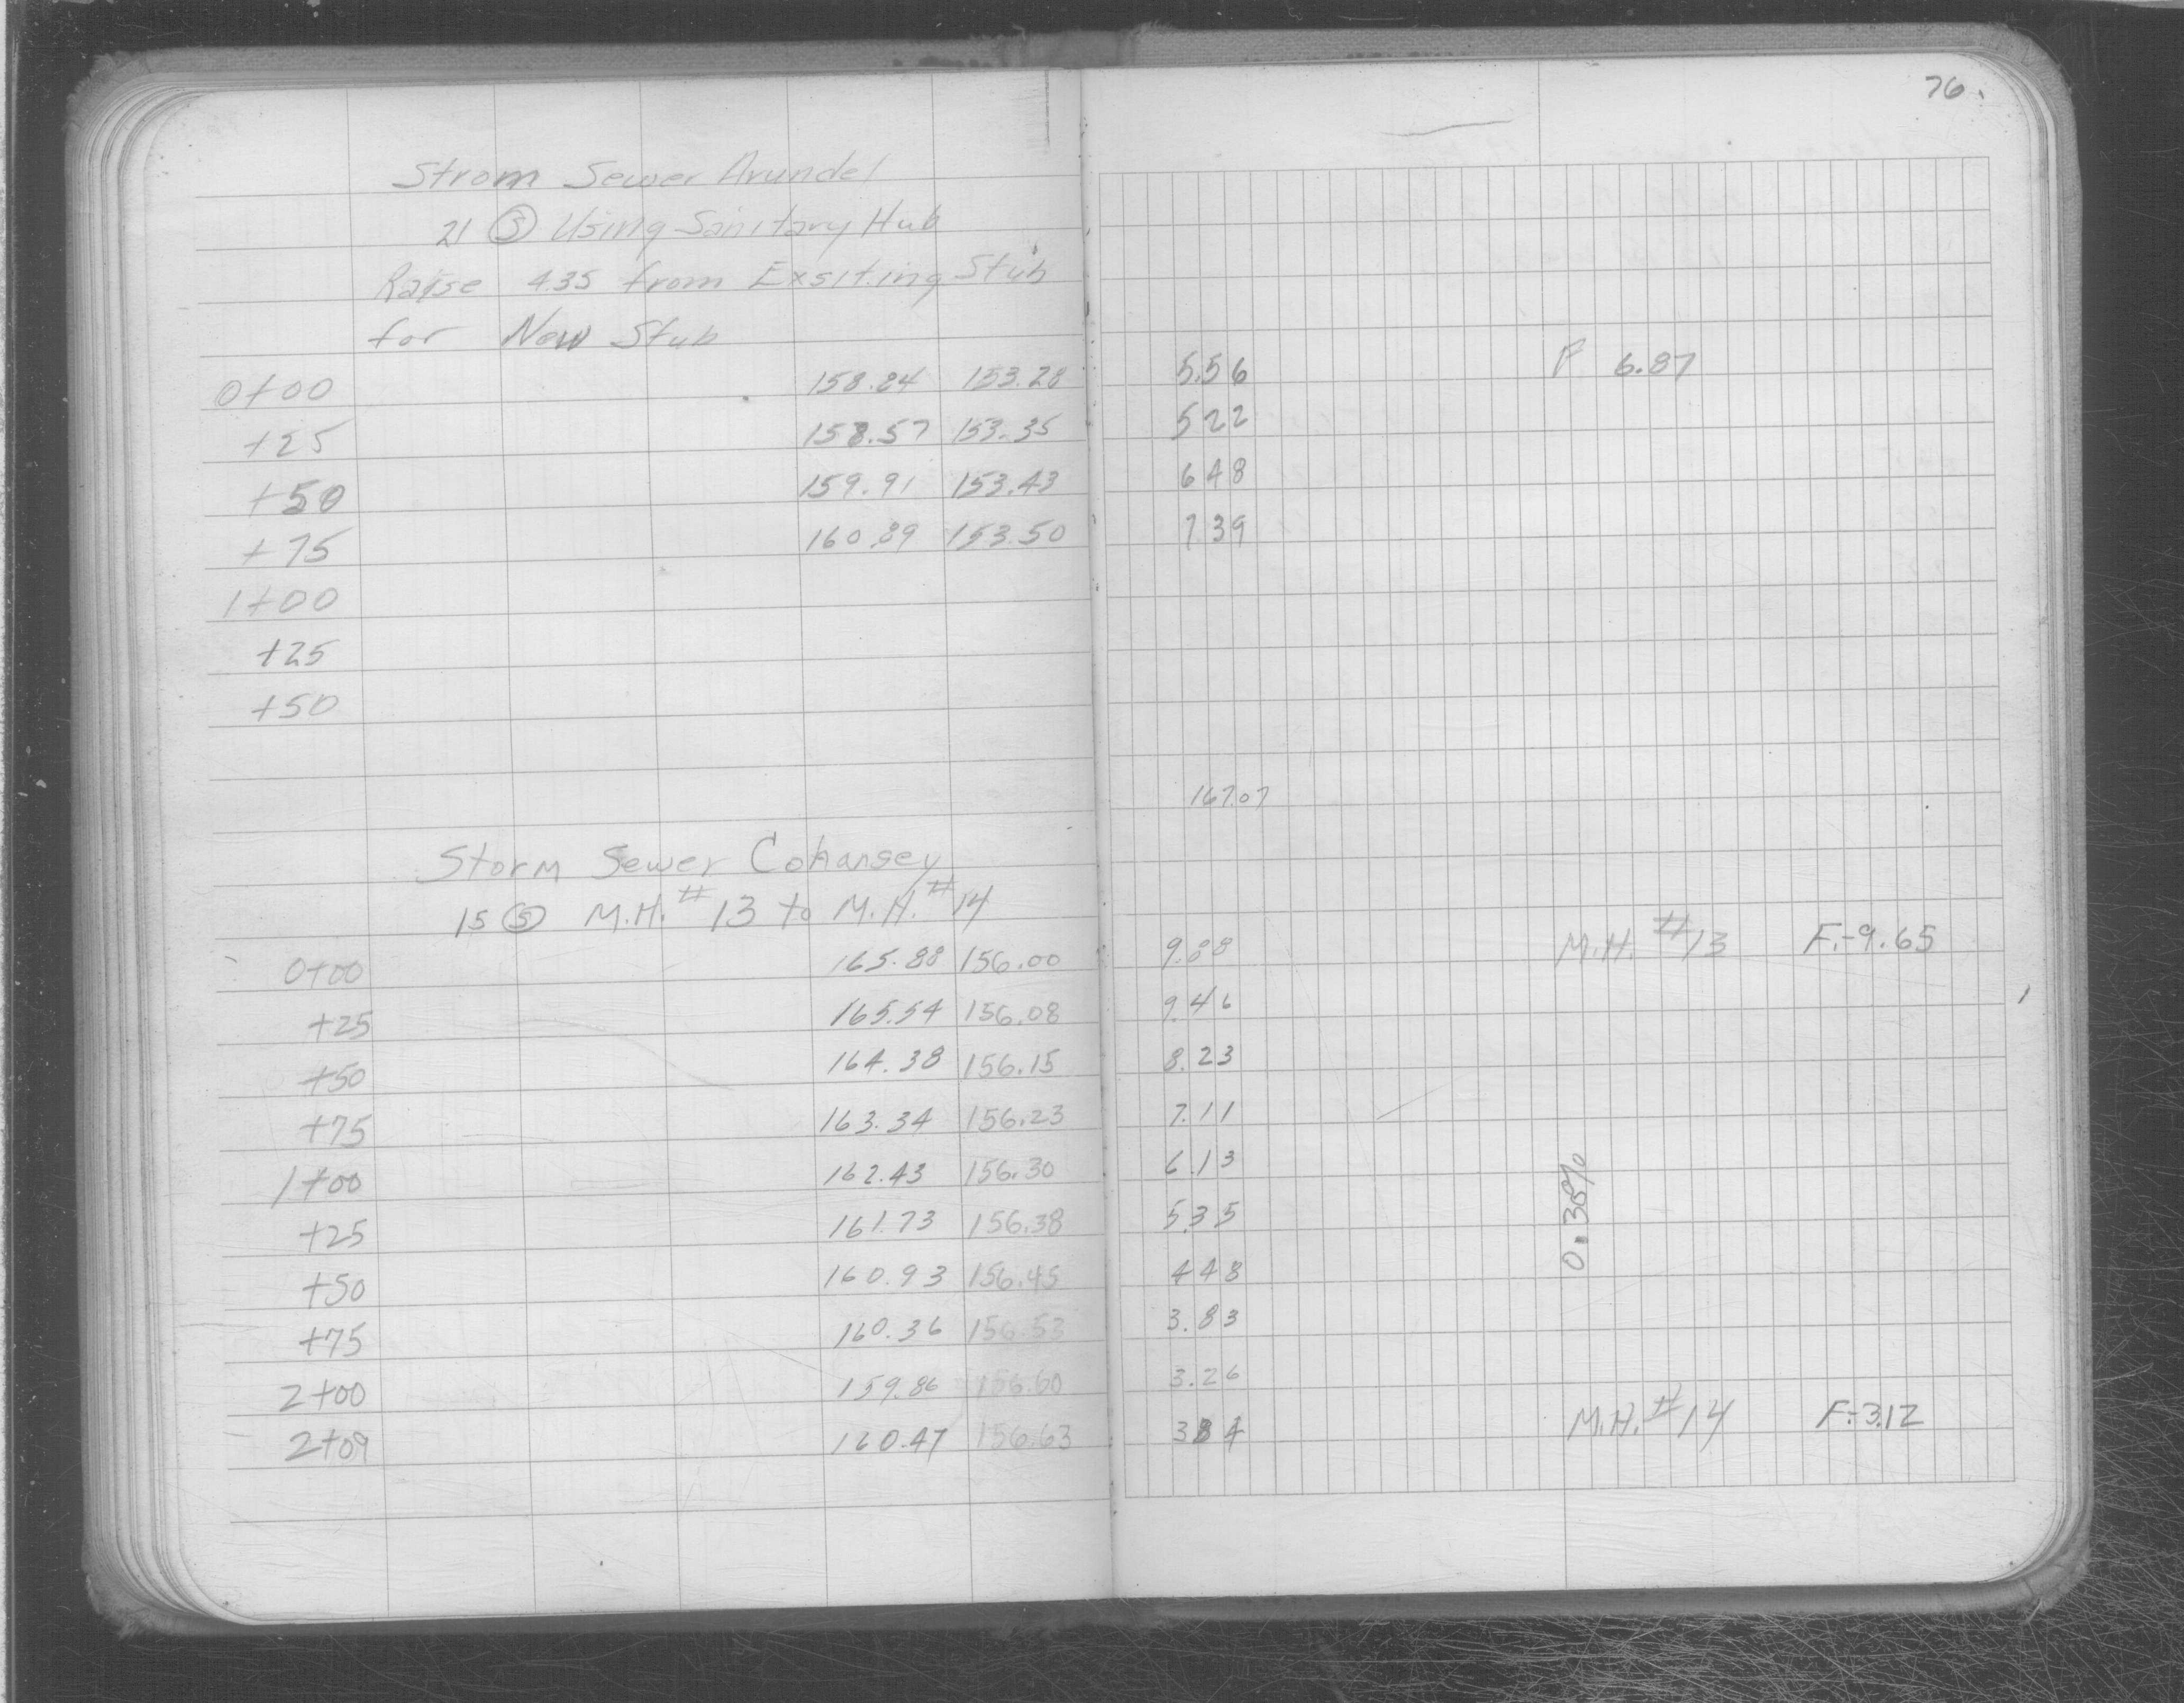 76.
Strom Sewer Arundel
21 (S) Using Sanitary Hub
Raise 4.35 from Exsiting Stub
for New Stub
0+00 158.84 153.28 5.56 P 6.87
+25 158.57 153.35 5 22
+50 159.91 153.43 6 48
+75 160.89 153.50 7 39
1+00
+25
+50
167.07
Storm Sewer Cohansey
15 (S) M.H. #13 to M.H. #14
0+00 165.88 156.00 9.88 M.H. #13 F.-9.65
+25 165.54 156.08 9.46
+50 164.38 156.15 8.23
+75 163.34 156.23 7.11
1+00 162.43 156.30 6.13
+25 161.73 156.38 5.35 0.30%
+50 160.93 156.45 4 48
+75 160.36 156.53 3.83
2+00 159.86 156.60 3.26
2+09 160.47 156.63 3 8 4 M.H. #14 F.-3.12